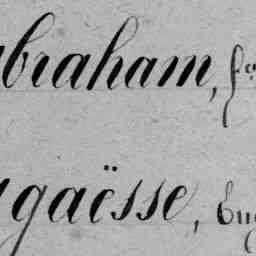 braham, fs
gaësse, Eug